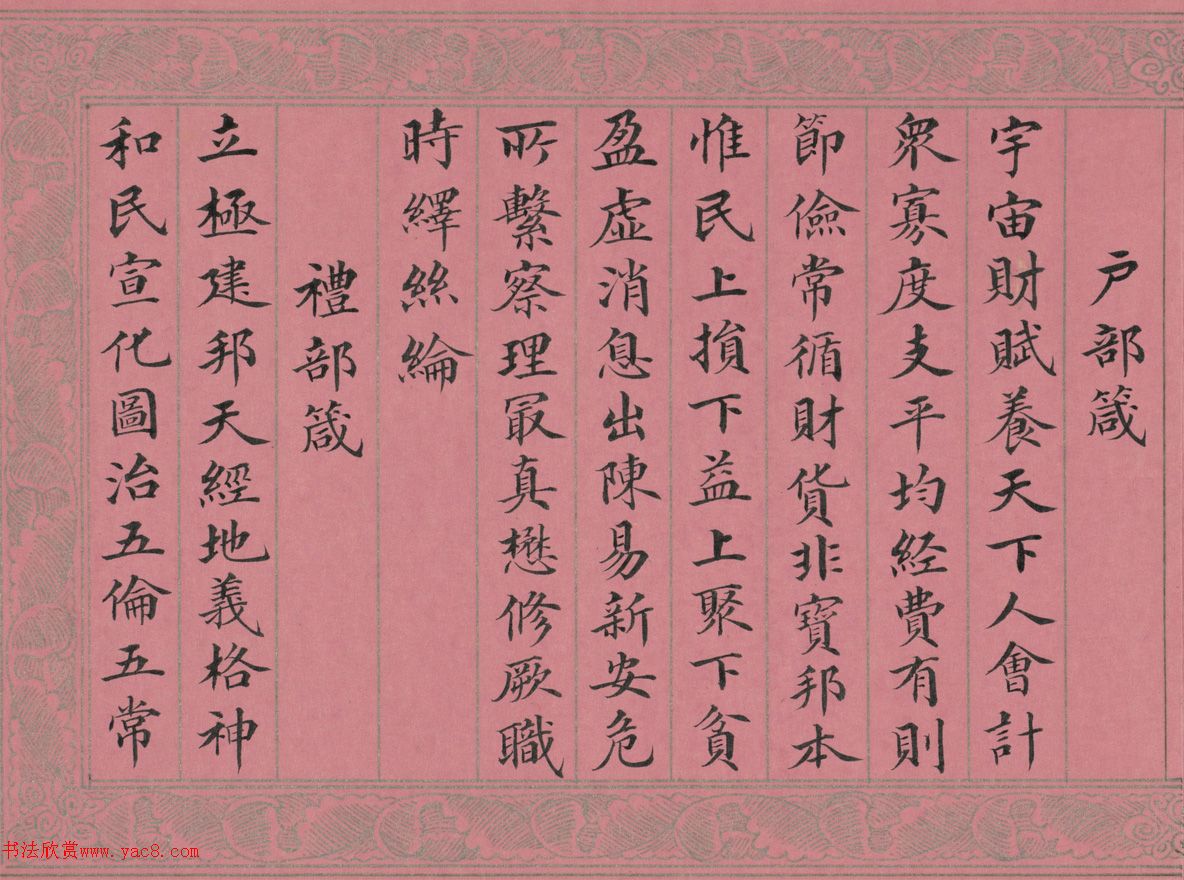 戶部箴
宇宙財賦養天下人會計
衆寡度支平均経費有則
節儉常循財貨非寶邦本
惟民上損下益上聚下貧
盈虛消息出陳易新安危
所繫察理最真懋修厥職
時繹絲綸
禮部箴
立極建邦天經地義格神
和民宣化圖治五倫五常
书法欣赏www.yac8.com